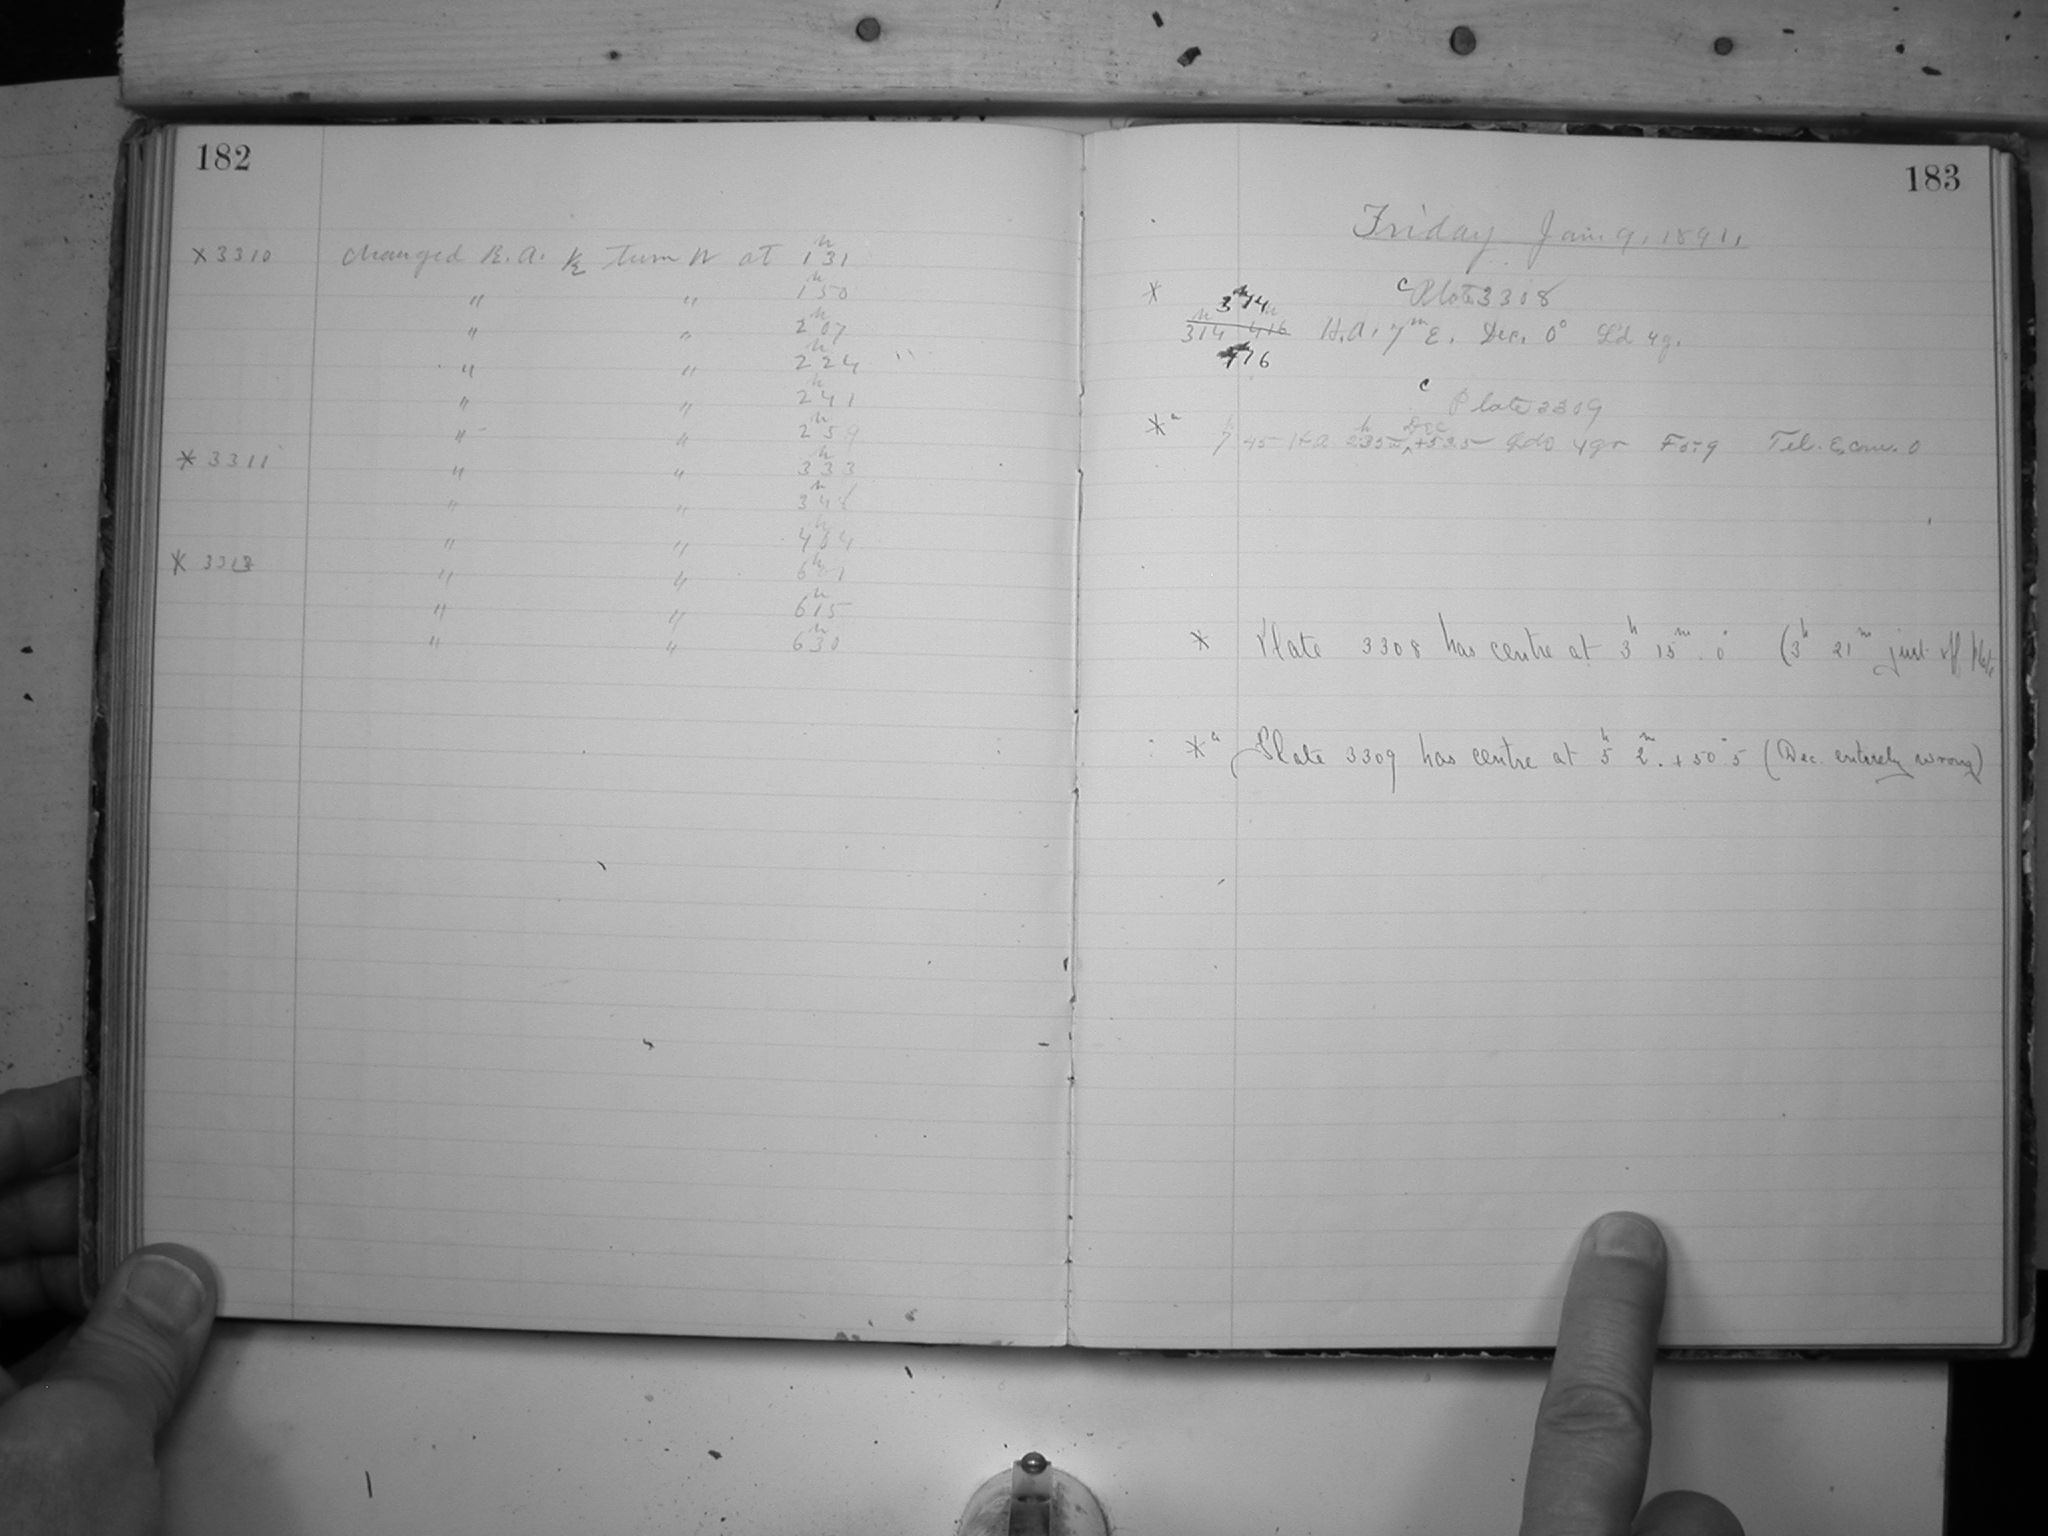 182
* 3310 Changed R.A. ½ turn W at 1ʰ31
" " 1ʰ50
" " 2ʰ07
" " 2ʰ24
" " 2ʰ41
" " 2ʰ59
* 3311 " " 3ʰ33
" " 3ʰ48
" " 4ʰ04
* 3313 " "
" " 6ʰ15
" " 6ʰ30
183
Friday Jan. 9, 1891.
* C Plate 3308
3ʰ14
3ʰ14 4ʰ16 H.A. 7ᵐ E. Dec. 0°
416
C Plate 3309
*ᵃ 7ʰ 45 H.A. Dec +52.5 Tel. E. Com. 0
* Plate 3308 has centre at 3ʰ 15ᵐ. 0° (3ʰ 21ᵐ just off plate
*ᵃ Plate 3309 has centre at 5ʰ 2ᵐ. +50°.5 (Dec. entirely wrong)